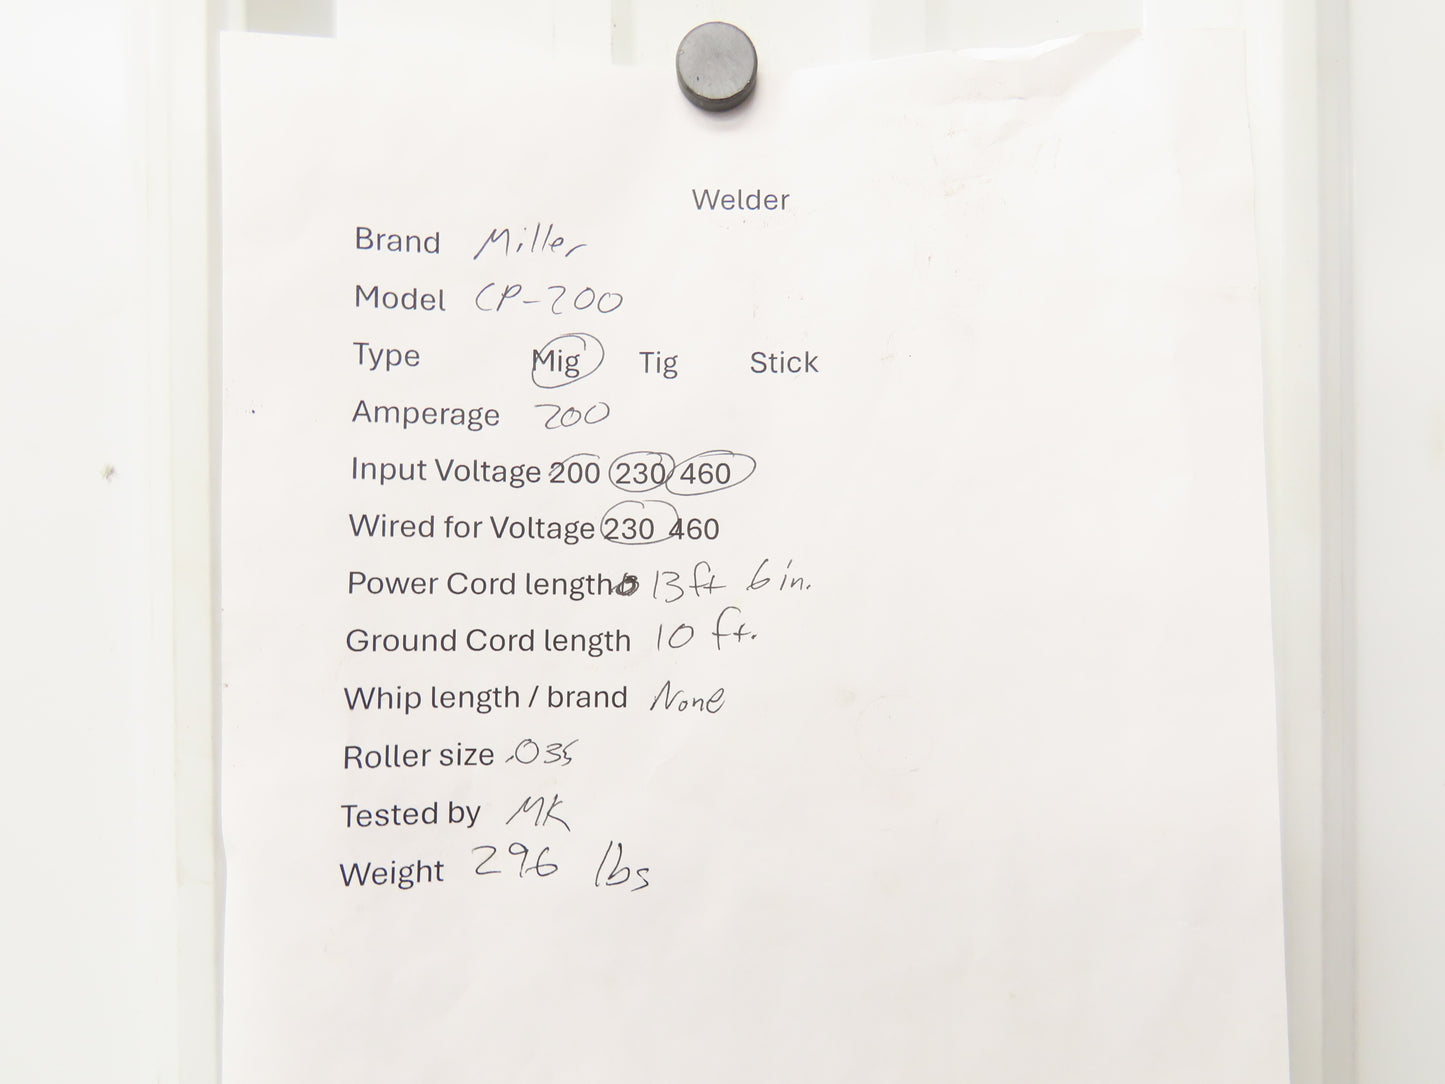 Welder
Brand Miller
Model CP-200
Type Mig Tig Stick
Amperage 200
Input Voltage 200 230 460
Wired for Voltage 230 460
Power Cord length 13 ft 6 in.
Ground Cord length 10 ft.
Whip length / brand None
Roller size .035
Tested by MK
Weight 296 lbs